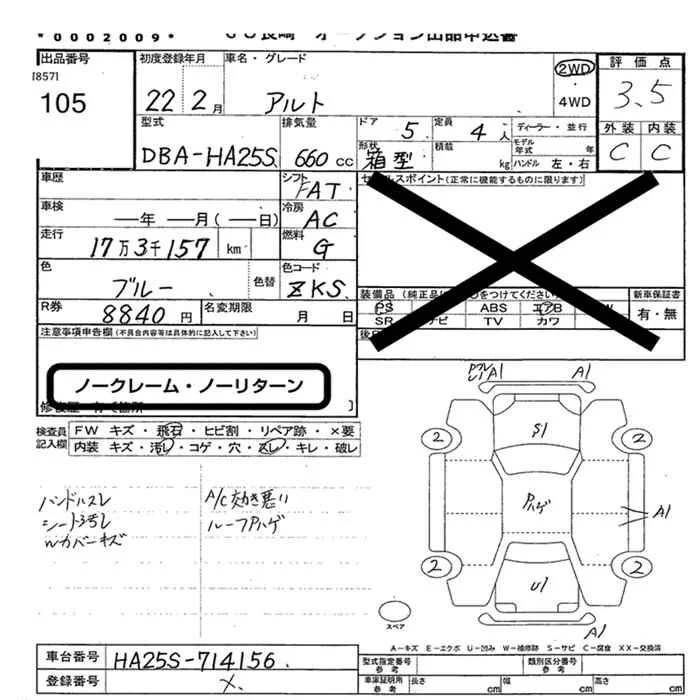 *0002009*
出品番号
[857]
105
初度登録年月
22 2月
車名・グレード
アルト
2WD
4WD
評価点
3.5
外装 内装
C C
型式
DBA-HA25S
排気量
660 cc
ドア 5
定員 4人
ディーラー・並行
形状
箱型
積載 kg
モデル年式 年
ハンドル 左・右
車歴
シフト
FAT
セールスポイント(正常に機能するものに限ります)
車検
年 月( 日)
冷房
AC
走行
17万3千157 km
燃料
G
色
ブルー
色替
色コード
ZKS
R券
8840円
名変期限
月 日
新車保証書
有・無
PS ABS エアB
SR TV カワ
注意事項申告欄(不具合内容等は具体的に記入して下さい)
ノークレーム・ノーリターン
検査員記入欄
FW キズ・飛石・ヒビ割・リペア跡・×要
内装 キズ・汚れ・コゲ・穴・スレ・キレ・破レ
ハンドルスレ
A/C効き悪い
ルーフPハゲ
Wカバーキズ
A1 A1
S1
2 2
Pハゲ
A1
2 2
U1
A1
スペア
A-キズ E-エクボ U-凹み W-補修跡 S-サビ C-腐食 XX-交換済
車台番号
HA25S-714156
登録番号
×
型式指定番号 参考
類別区分番号 参考
車庫証明用 参考
長さ cm
幅 cm
高さ cm